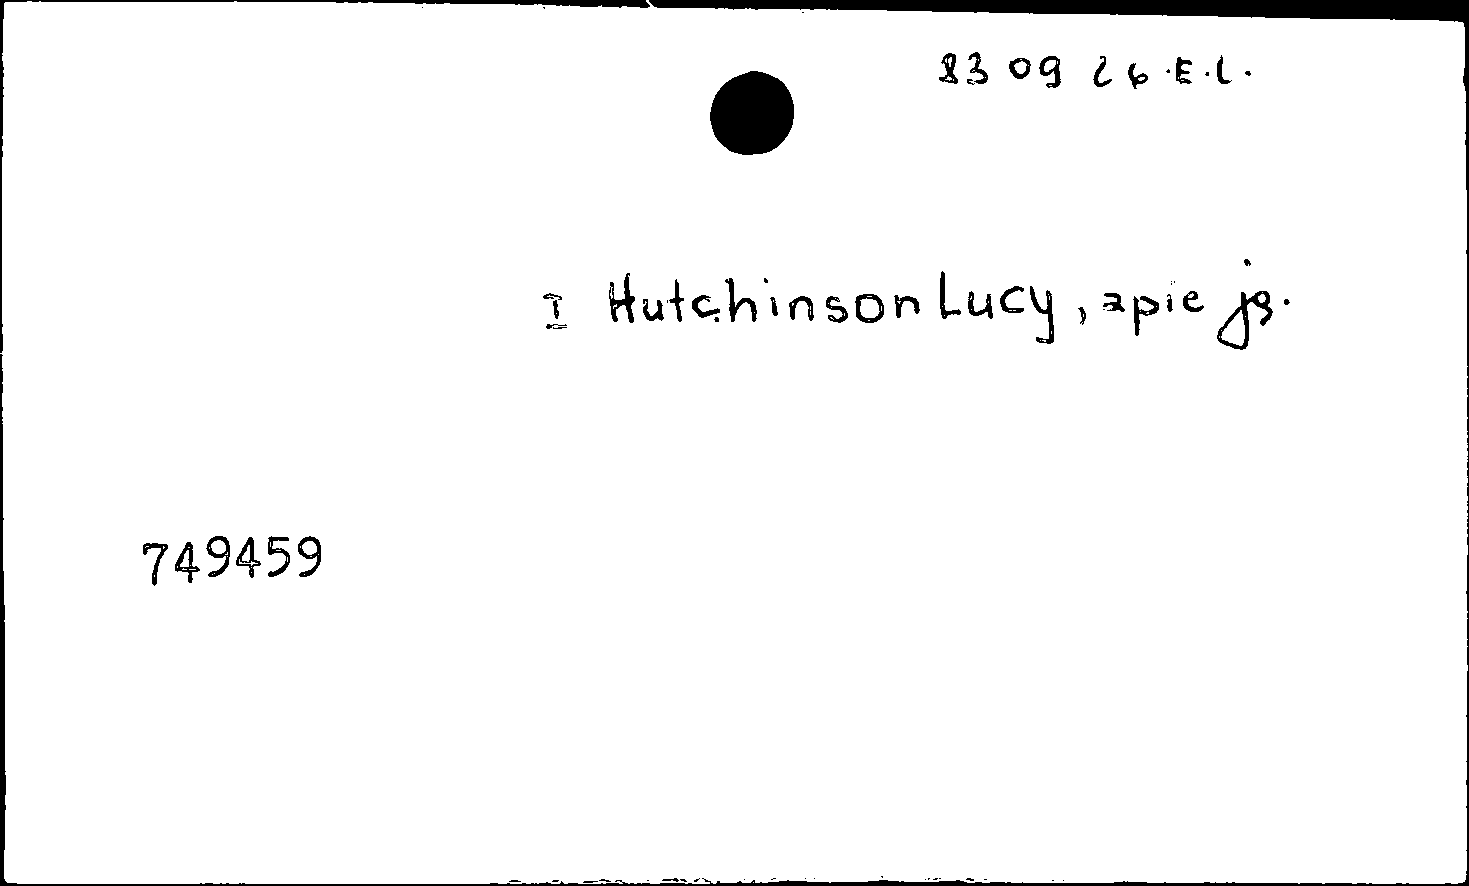 83 09 26.E.L.
I Hutchinson Lucy, apie ją.
749459